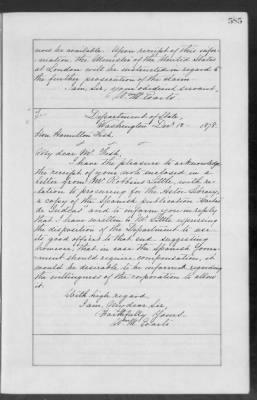 585
now be available. Upon receipt of this infor-
mation, the Minister of the United States
at London will be instructed in regard to
the further prosecution of the claim.
I am, Sir, your obedient servant,
Wm. M. Evarts
Department of State,
Washington, Dec. 10 1878.
Hon. Hamilton Fish.
My dear Mr. Fish,
I have the pleasure to acknowledge
the receipt of your note enclosed in a
letter from Mr. Robbins Little, with re-
lation to procuring for the Astor Library,
a copy of the Spanish publication
de Indias and to inform you in reply
that I have written to Mr. Little expressing
the disposition of the Department to use
its good offices to that end, suggesting
however, that in case the Spanish Govern-
ment should require compensation, it
would be desirable to be informed regarding
the willingness of the corporation to allow
it.
With high regard,
I am, My dear Sir,
Faithfully Yours.
Wm. M. Evarts